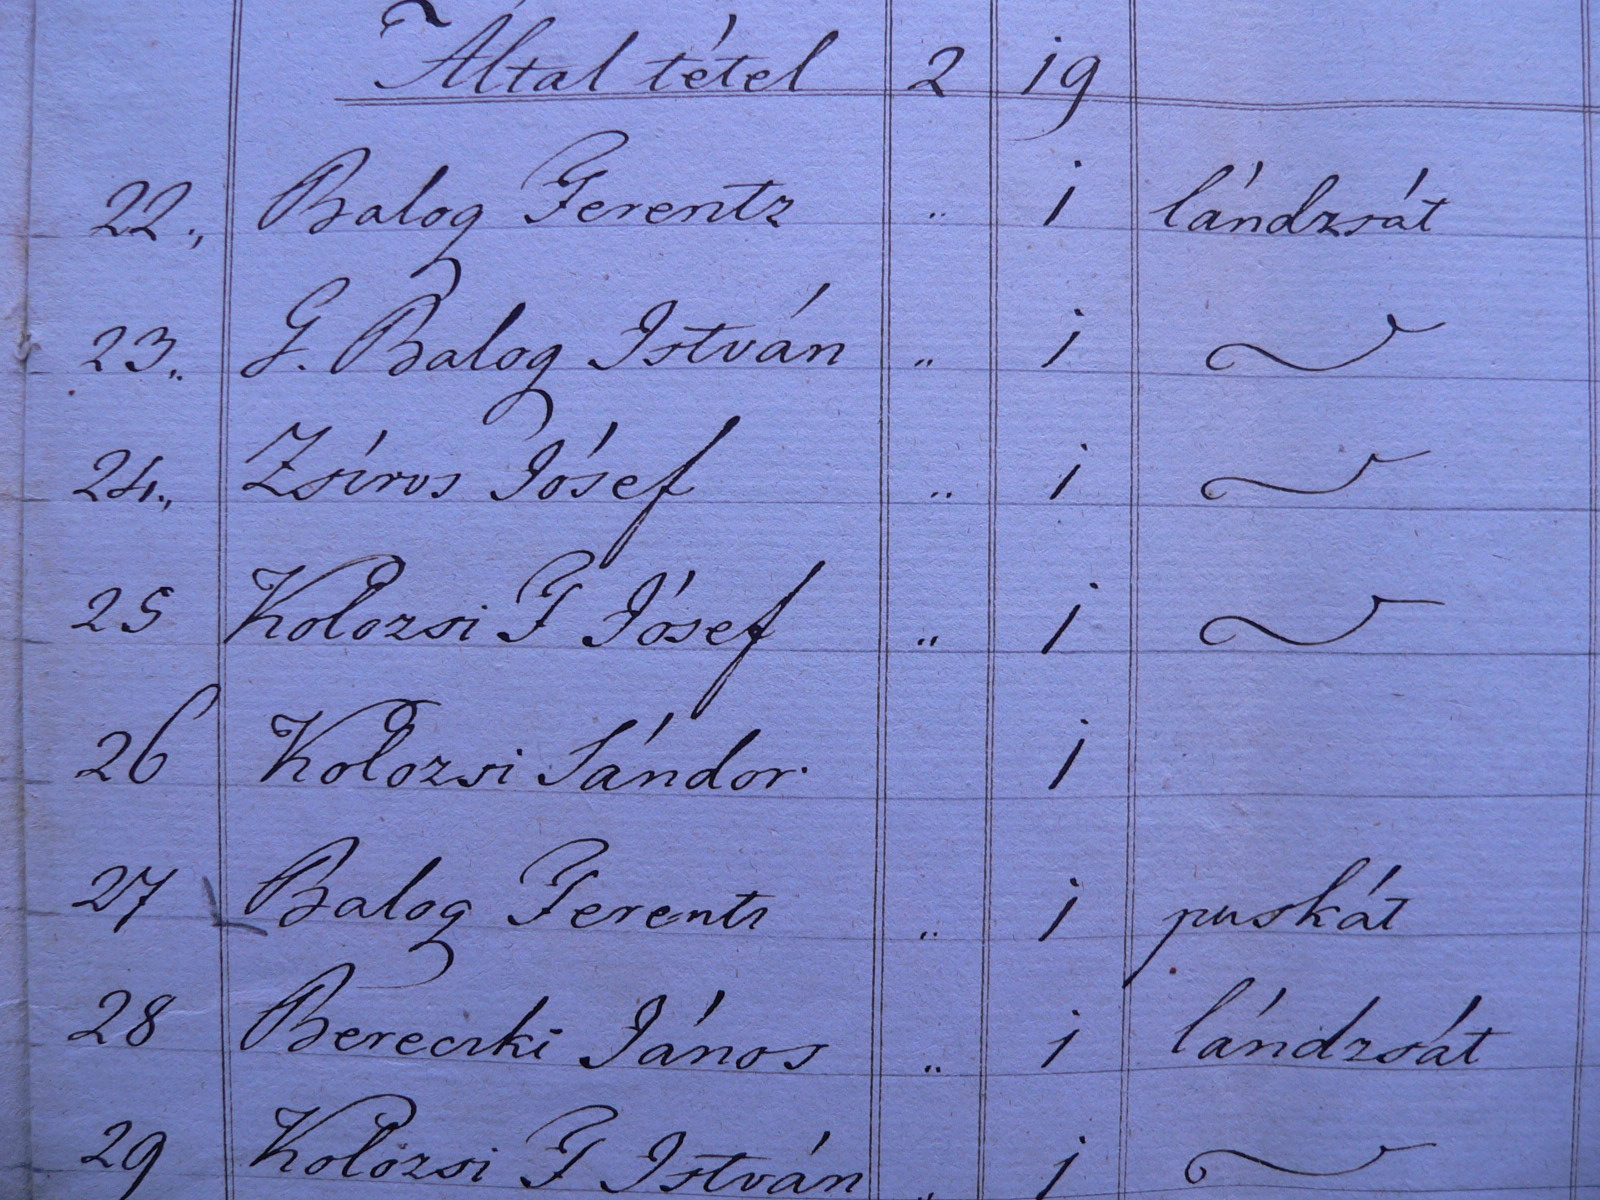 Által tétel 2 19
22., Balog Ferentz " 1 lándzsát
23., G. Balog István " 1 〃
24., Zsíros Jósef " 1 〃
25 Kolozsi F Jósef " 1 〃
26 Kolozsi Sándor 1
27 Balog Ferents " 1 puskát
28 Bereczki János " 1 lándzsát
29 Kolozsi F István " 1 〃